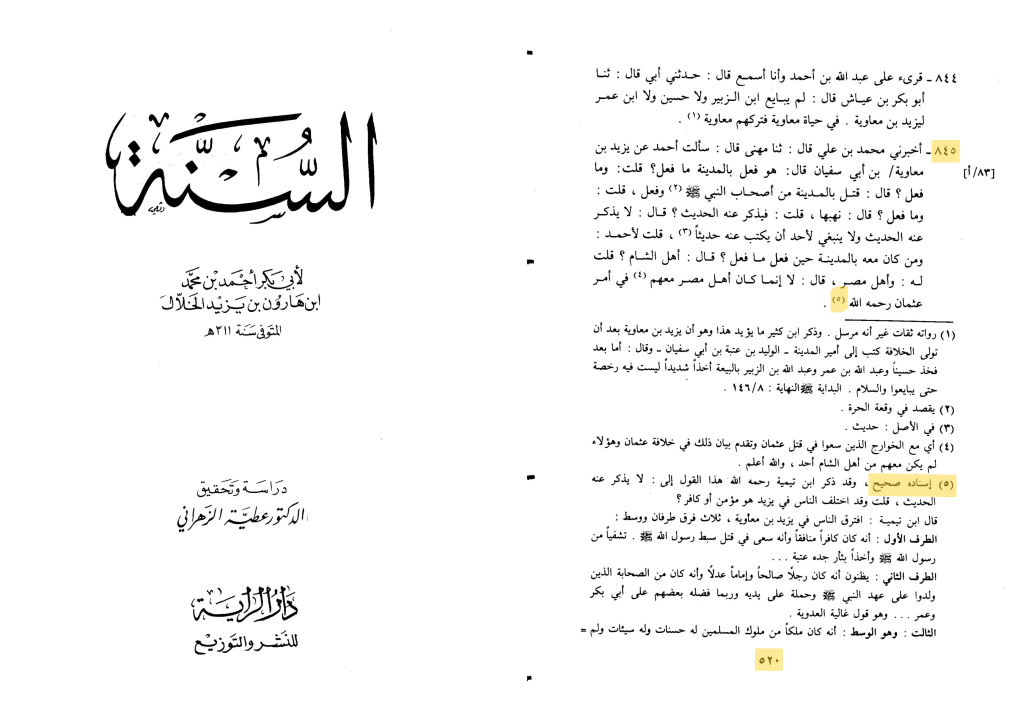 ٨٤٤ ـ قرىء على عبد الله بن أحمد وأنا أسمع قال : حدثني أبي قال : ثنا
أبو بكر بن عياش قال : لم يبايع ابن الزبير ولا حسين ولا ابن عمر
ليزيد بن معاوية . في حياة معاوية فتركهم معاوية (١) .
٨٤٥ ـ أخبرني محمد بن علي قال : ثنا مهنى قال : سألت أحمد عن يزيد بن
معاوية/ بن أبي سفيان قال: هو فعل بالمدينة ما فعل؟ قلت: وما
[٨٣/أ]
فعل ؟ قال : قتل بالمدينة من أصحاب النبي ﷺ (٢) وفعل ، قلت :
وما فعل ؟ قال : نهبها ، قلت : فيذكر عنه الحديث؟ قال : لا يذكر
عنه الحديث ولا ينبغي لأحد أن يكتب عنه حديثاً (٣) ، قلت لأحمد :
ومن كان معه بالمدينة حين فعل ما فعل ؟ قال : أهل الشام ؟ قلت
له : وأهل مصر ، قال : لا إنما كان أهل مصر معهم (٤) في أمر
عثمان رحمه الله (٥) .
(١) رواته ثقات غير أنه مرسل . وذكر ابن كثير ما يؤيد هذا وهو أن يزيد بن معاوية بعد أن
تولى الخلافة كتب إلى أمير المدينة ـ الوليد بن عتبة بن أبي سفيان ـ وقال : أما بعد
فخذ حسيناً وعبد الله بن عمر وعبد الله بن الزبير بالبيعة أخذاً شديداً ليست فيه رخصة
حتى يبايعوا والسلام . البداية ﷺالنهاية : ١٤٦/٨ .
(٢) يقصد في وقعة الحرة .
(٣) في الأصل : حديث .
(٤) أي مع الخوارج الذين سعوا في قتل عثمان وتقدم بيان ذلك في خلافة عثمان وهؤلاء
لم يكن معهم من أهل الشام أحد ، والله أعلم .
(٥) إسناده صحيح ، وقد ذكر ابن تيمية رحمه الله هذا القول إلى : لا يذكر عنه
الحديث ، قلت وقد اختلف الناس في يزيد هو مؤمن أو كافر؟
قال ابن تيمية : افترق الناس في يزيد بن معأوية ، ثلاث فرق طرفان ووسط :
الطرف الأول : أنه كان كافراً منافقاً وأنه سعى في قتل سبط رسول الله ﷺ . تشفياً من
رسول الله ﷺ وأخذاً بثأر جده عتبة ...
الطرف الثاني : يظنون أنه كان رجلًا صالحاً وإماماً عدلًا وأنه كان من الصحابة الذين
ولدوا على عهد النبي ﷺ وحملة على يديه وربما فضله بعضهم على أبي بكر
وعمر ... وهو قول غالية العدوية .
الثالث : وهو الوسط : أنه كان ملكاً من ملوك المسلمين له حسنات وله سيئات ولم =
٥٢٠
السُّنَّة
لأبي بكر أحمد بن محمد
ابن هارون بن يزيد الخلال
المتوفى سنة ٣١١هـ
دراسة وتحقيق
الدكتور عطية الزهراني
دار الراية
للنشر والتوزيع